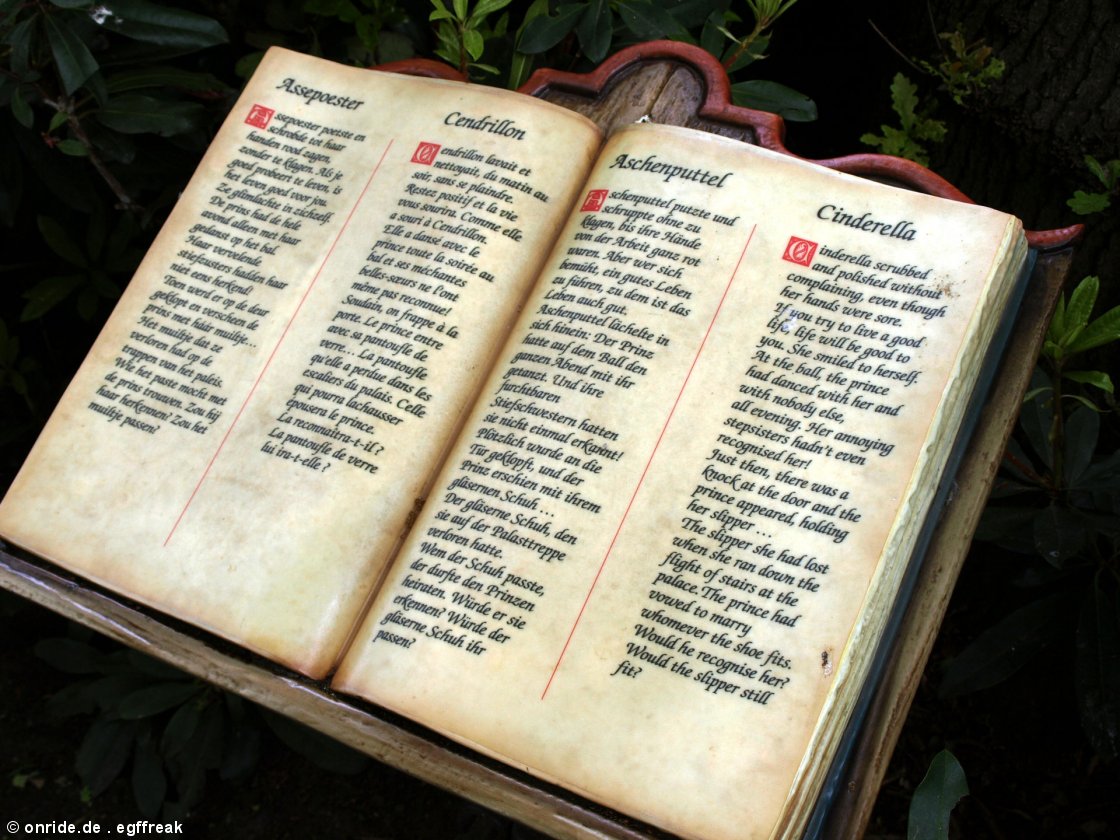 Assepoester
Assepoester poetste en
schrobde tot haar
handen rood zagen,
zonder te klagen. Als je
goed probeert te leven, is
het leven goed voor jou.
Ze glimlachte in zichzelf.
De prins had de hele
avond alleen met haar
gedanst op het bal.
Haar vervelende
stiefzusters hadden haar
niet eens herkend!
Toen werd er op de deur
geklopt en verscheen de
prins met háár muiltje...
Het muiltje dat ze
verloren had op de
trappen van het paleis.
Wie het paste mocht met
de prins trouwen. Zou hij
haar herkennen? Zou het
muiltje passen?
Cendrillon
Cendrillon lavait et
nettoyait, du matin au
soir, sans se plaindre.
Restez positif et la vie
vous sourira. Comme elle
a souri à Cendrillon.
Elle a dansé avec le
prince toute la soirée au
bal et ses méchantes
belles-sœurs ne l'ont
même pas reconnue!
Soudain, on frappe à la
porte. Le prince entre
avec sa pantoufle de
verre... La pantoufle
qu'elle a perdue dans les
escaliers du palais. Celle
qui pourra lachausser
épousera le prince.
La reconnaîtra-t-il ?
La pantoufle de verre
lui ira-t-elle ?
Aschenputtel
Aschenputtel putzte und
schruppte ohne zu
klagen, bis ihre Hände
von der Arbeit ganz rot
waren. Aber wer sich
bemüht, ein gutes Leben
zu führen, zu dem ist das
Leben auch gut.
Aschenputtel lächelte in
sich hinein: Der Prinz
hatte auf dem Ball den
ganzen Abend mit ihr
getanzt. Und ihre
furchtbaren
Stiefschwestern hatten
sie nicht einmal erkannt!
Plötzlich wurde an die
Tür geklopft, und der
Prinz erschien mit ihrem
gläsernen Schuh ...
Der gläserne Schuh, den
sie auf der Palasttreppe
verloren hatte.
Wem der Schuh passte,
der durfte den Prinzen
heiraten. Würde er sie
erkennen? Würde der
gläserne Schuh ihr
passen?
Cinderella
Cinderella scrubbed
and polished without
complaining, even though
her hands were sore.
If you try to live a good
life, life will be good to
you. She smiled to herself.
At the ball, the prince
had danced with her and
with nobody else,
all evening. Her annoying
stepsisters hadn't even
recognised her!
Just then, there was a
knock at the door and the
prince appeared, holding
her slipper ...
The slipper she had lost
when she ran down the
flight of stairs at the
palace. The prince had
vowed to marry
whomever the shoe fits.
Would he recognise her?
Would the slipper still
fit?
© onride.de . egffreak